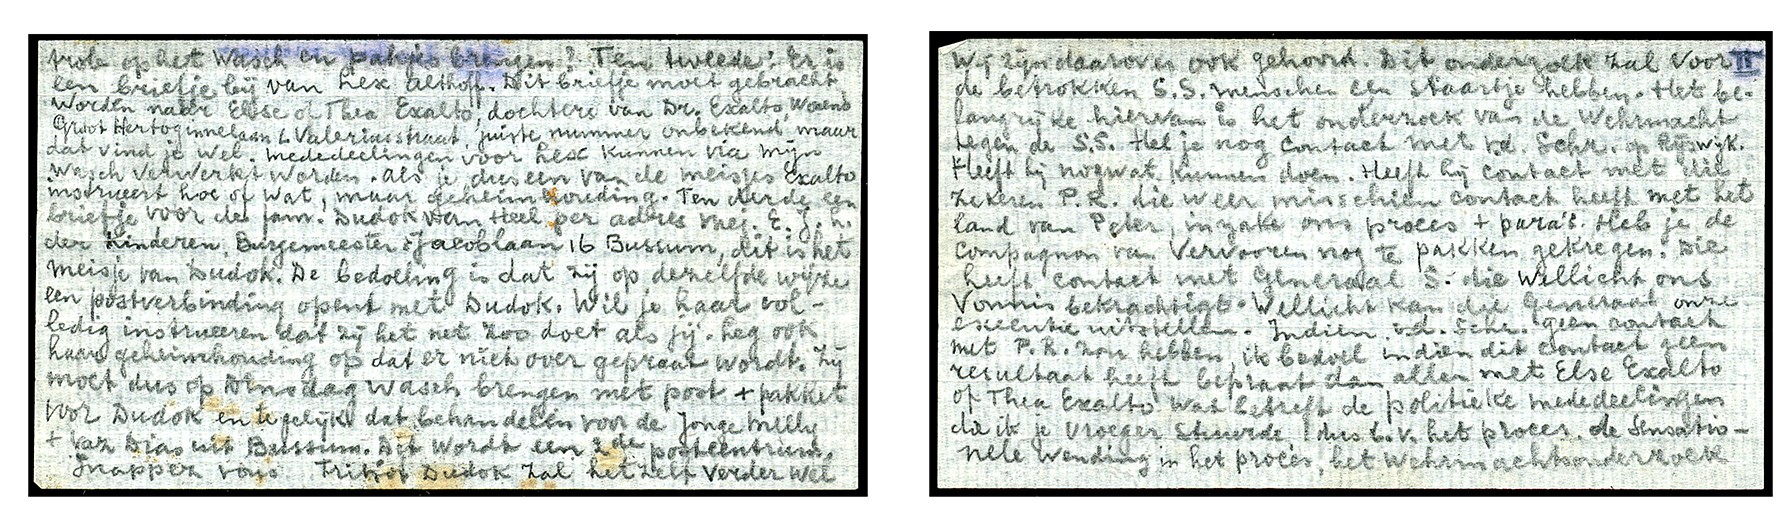 trole op het Wasch en pakjes brengen? Ten tweede: Er is
een briefje bij van Lex Althoff. Dit briefje moet gebracht
worden naar Else of Thea Exalto, dochters van Dr. Exalto, Woens
Groot Hertoginnelaan & Valeriusstraat, juiste nummer onbekend, maar
dat vind je wel. Mededeelingen voor Lex kunnen via mijn
wasch verwerkt worden. Als je dus een van de meisjes Exalto
instrueert hoe of wat, maar geheimhouding. Ten derde een
briefje voor de fam. Dudok van Heel per adres Mej. E. J. L.
der Kinderen, Burgemeester s'Jacoblaan 16 Bussum, dit is het
meisje van Dudok. De bedoeling is dat zij op dezelfde wijze
een postverbinding opent met Dudok. Wil je haar vol-
ledig instrueeren dat zij het net zoo doet als jij. Leg ook
haar geheimhouding op dat er niets over gepraat wordt. Zij
moet dus op Dinsdag Wasch brengen met post + pakket
voor Dudok en tegelijk dat behandelen voor de Jonge Milly
+ Vaz Dias uit Bussum. Dit wordt een 2de postcentrum.
Snappez vous Fritjof Dudok zal het zelf verder wel
Wij zijn daarover ook gehoord. Dit onderzoek zal voor II
de betrokken S.S. menschen een staartje hebben. Het be-
langrijke hiervan is het onderzoek van de Wehrmacht
tegen de S.S. Heb je nog contact met v.d. Schr. op Rijswijk.
Heeft hij nog wat kunnen doen. Heeft hij contact met die
zekeren P.R. die weer misschien contact heeft met het
land van Peter, inzake ons proces + para's. Heb je de
compagnon van Vervooren nog te pakken gekregen. Die
heeft contact met Generaal S. die wellicht ons
Vonnis bekrachtigt. Wellicht kan die Generaal onze
executie uitstellen. Indien v.d. Schr. geen contact
met P.R. zou hebben, ik bedoel indien dit contact geen
resultaat heeft bepraat dan alles met Else Exalto
of Thea Exalto wat betreft de politieke mededeelingen
die ik je vroeger stuurde, dus b.v. het proces, de sensatio-
nele wending in het proces, het Wehrmachtsonderzoek